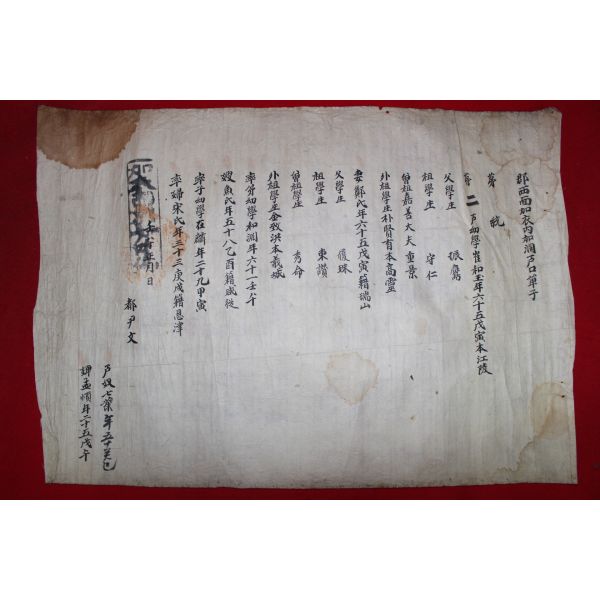 郡西面加衣內加澗戶口單子
第 統
第二戶幼學崔和玉年六十五戊寅本江陵
父學生 珉鷹
祖學生 守仁
曾祖嘉善大夫重景
外祖學生朴賢育本高靈
妻鄭氏年六十五戊寅籍瑞山
父學生 復珠
祖學生 東讚
曾祖學生 秀命
外祖學生金致洪本義城
率弟幼學和淵年六十一壬午
嫂魚氏年五十八乙酉籍咸從
率子幼學在 年二十九甲寅
率婦宋氏年三十三庚戌籍恩津
壬午 月 日
都尹文
戶奴七 年五十 癸巳
婢孟 年二十五戊午